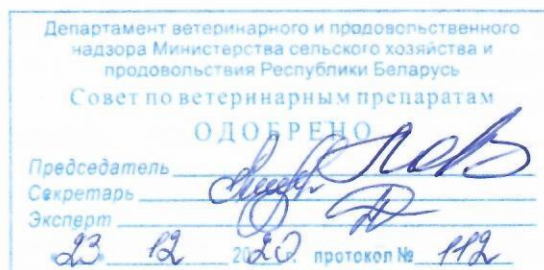 Департамент ветеринарного и продовольственного
надзора Министерства сельского хозяйства и
продовольствия Республики Беларусь
Совет по ветеринарным препаратам
ОДОБРЕНО
Председатель
Секретарь
Эксперт
«23» 12 2020г. протокол № 112